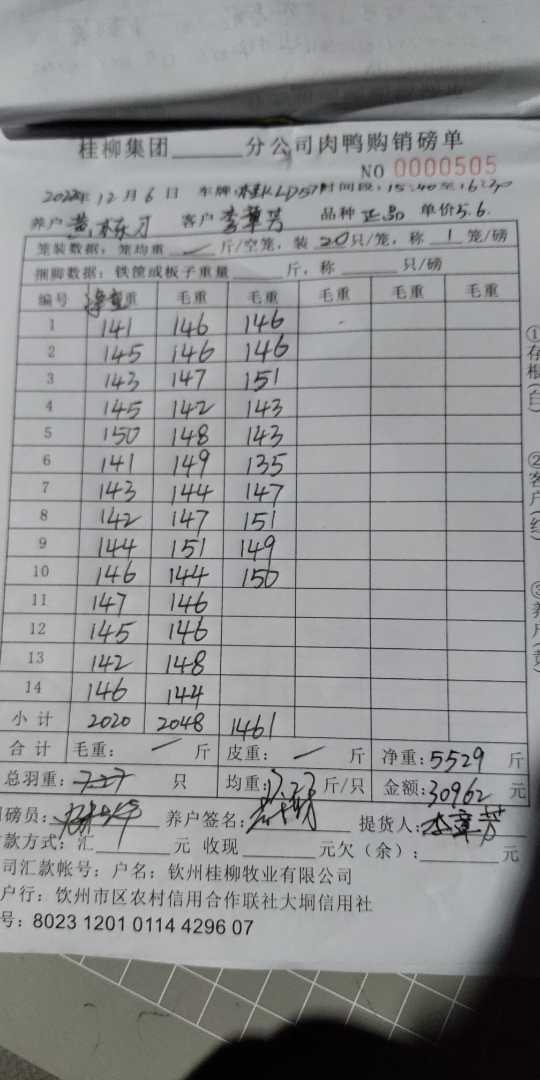 桂柳集团______分公司肉鸭购销磅单
NO 0000505
2022年 12月 6日 车牌: 时间段: 15:40至16:30
养户 客户 李章芳 品种 正品 单价5.6.
笼装数据: 笼均重 — 斤/空笼, 装 20只/笼, 称 1 笼/磅
捆脚数据: 铁筐或板子重量______斤, 称______只/磅
编号 净重 毛重 毛重 毛重 毛重 毛重
1 141 146 146
2 145 146 146
3 143 147 151
4 145 142 143
5 150 148 143
6 141 149 135
7 143 144 147
8 142 147 151
9 144 151 149
10 146 144 150
11 147 146
12 145 146
13 142 148
14 146 144
小计 2020 2048 1461
合计 毛重: — 斤 皮重: — 斤 净重: 5529 斤
总羽重: 只 均重: 斤/只 金额: 30962 元
磅员: 养户签名: 提货人: 李章芳
款方式: 汇______元 收现______元欠(余):______元
司汇款帐号: 户名: 钦州桂柳牧业有限公司
户行: 钦州市区农村信用合作联社大垌信用社
号: 8023 1201 0114 4296 07
①存根(白)
②客户(红)
③养户(黄)